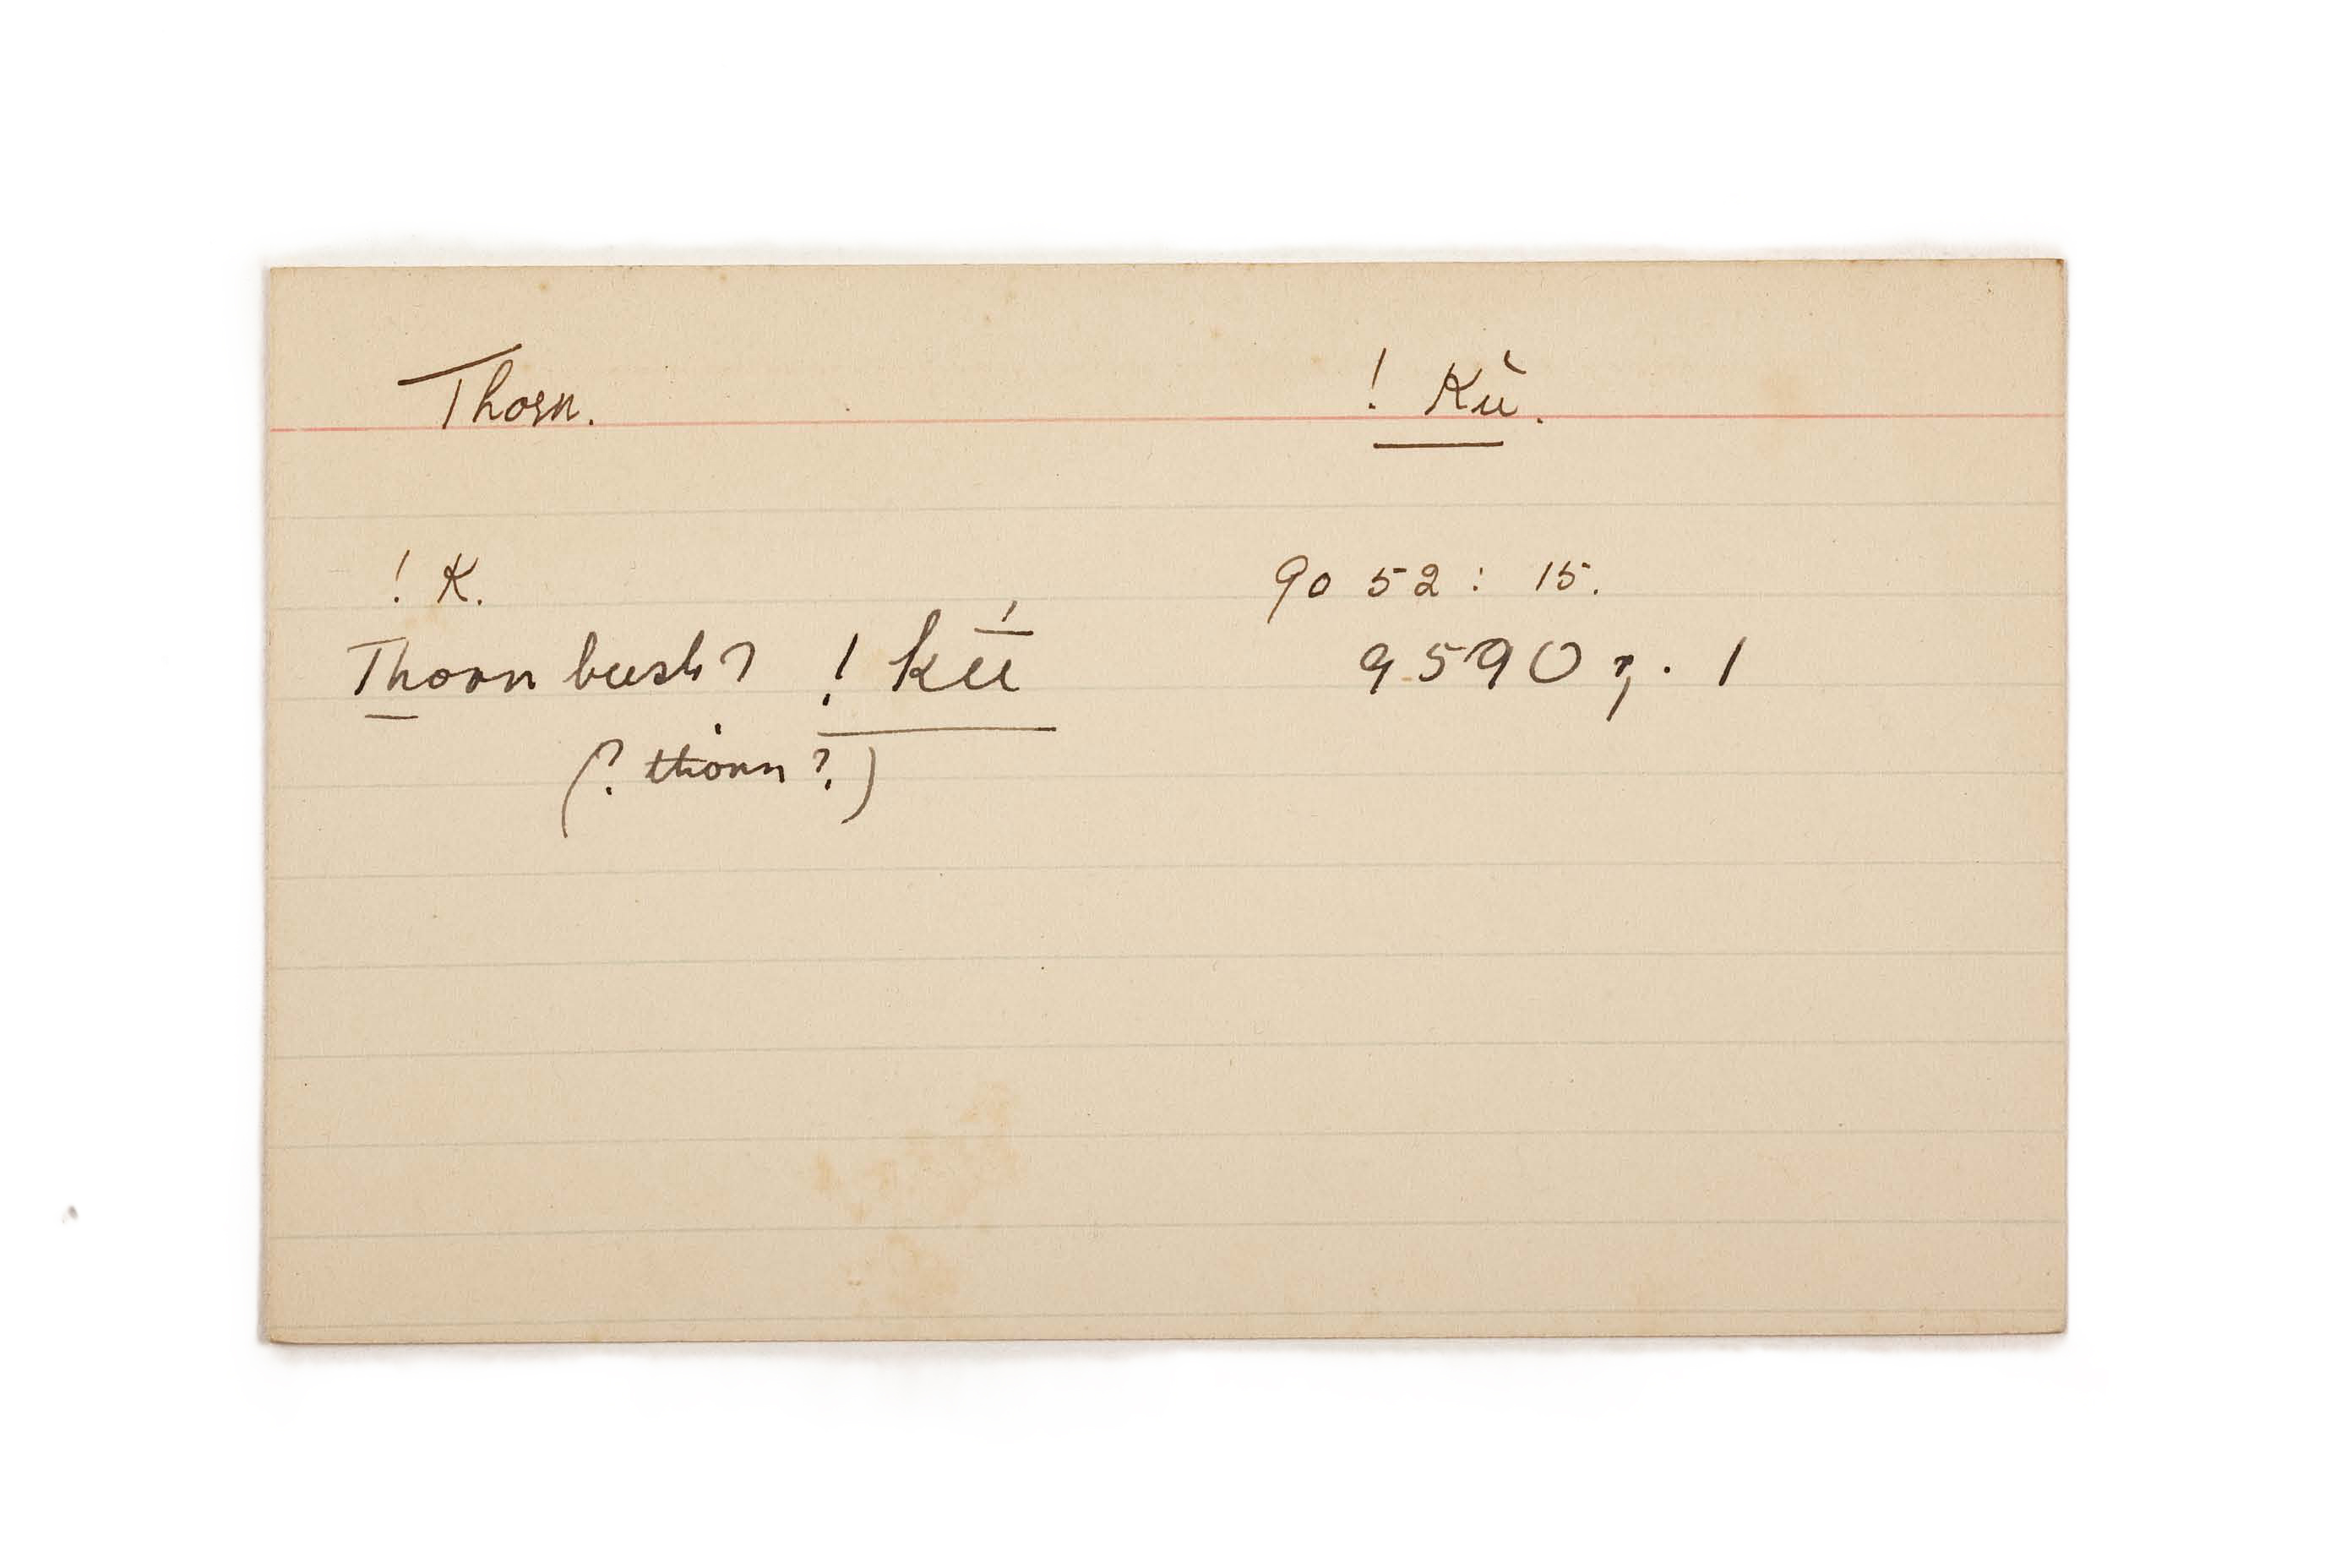 Thorn. ! Kŭ.
! K. 9052 : 15.
Thorn bush? ! kū́ 9590 r. 1
(? thorn ?)